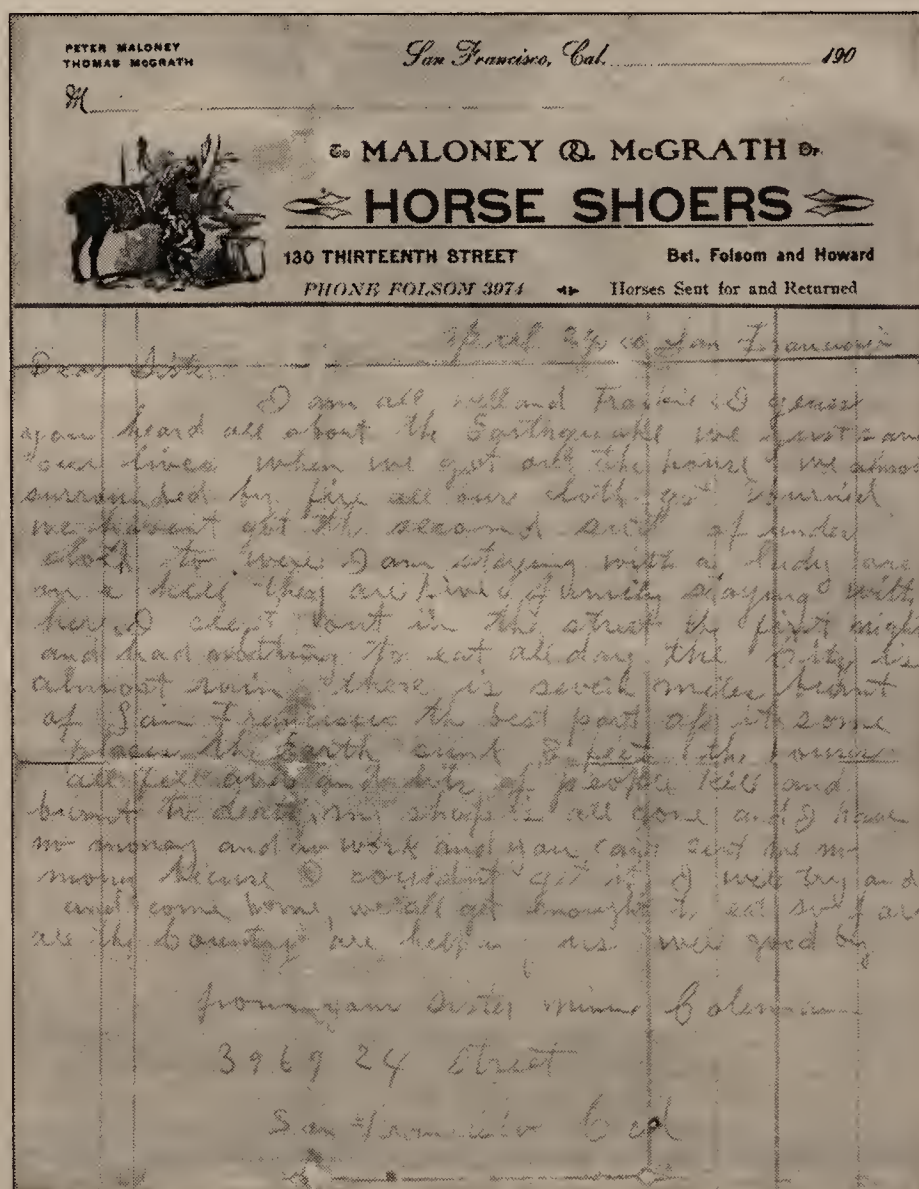 PETER MALONEY
THOMAS McGRATH
San Francisco, Cal. 190
M
To MALONEY & McGRATH Dr.
HORSE SHOERS
130 THIRTEENTH STREET Bet. Folsom and Howard
PHONE FOLSOM 3974 Horses Sent for and Returned
April San Francisco
Dear Sister
I am all well and Frankie I guess
you heard all about the Earthquake we just save
our lives when we got out the house we almost
surrounded by fire all our cloth got burnid
we havent got the second suit of under
cloth to were I am staying with a lady are
on a hill they are five family staying with
her I slept out in the street the first night
and had nothing to eat all day the sity is
almost ruin there is seven miles burnt
of San Francisco the best part of it some
places the Earth sunk 8 feet the houses
all fell and lots of people kill and
burnt to death my shop is all gone and I have
no money and no work and you cant send me no
money because I couldent get it I will try and
and come home we all get enought to eat so far
all the Country are helpin us well good by
from your sister Coleman
3969 24 Street
San Francisco Cal